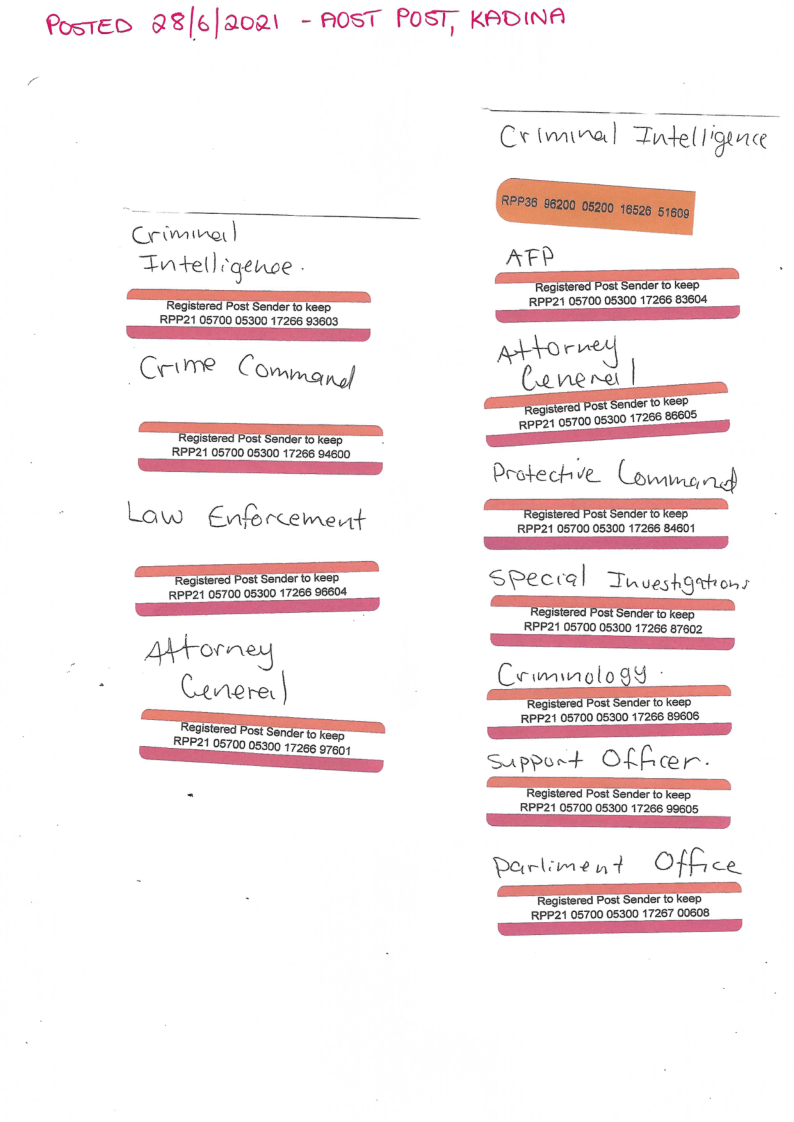 POSTED 28/6/2021 - AOST POST, KADINA
Criminal
Intelligence.
Registered Post Sender to keep
RPP21 05700 05300 17266 93603
Crime Command
Registered Post Sender to keep
RPP21 05700 05300 17266 94600
Law Enforcement
Registered Post Sender to keep
RPP21 05700 05300 17266 96604
Attorney
General
Registered Post Sender to keep
RPP21 05700 05300 17266 97601
Criminal Intelligence
RPP36 96200 05200 16526 51609
AFP
Registered Post Sender to keep
RPP21 05700 05300 17266 83604
Attorney
General
Registered Post Sender to keep
RPP21 05700 05300 17266 86605
Protective Command
Registered Post Sender to keep
RPP21 05700 05300 17266 84601
Special Investigations
Registered Post Sender to keep
RPP21 05700 05300 17266 87602
Criminology.
Registered Post Sender to keep
RPP21 05700 05300 17266 89606
Support Officer.
Registered Post Sender to keep
RPP21 05700 05300 17266 99605
Parliment Office
Registered Post Sender to keep
RPP21 05700 05300 17267 00608